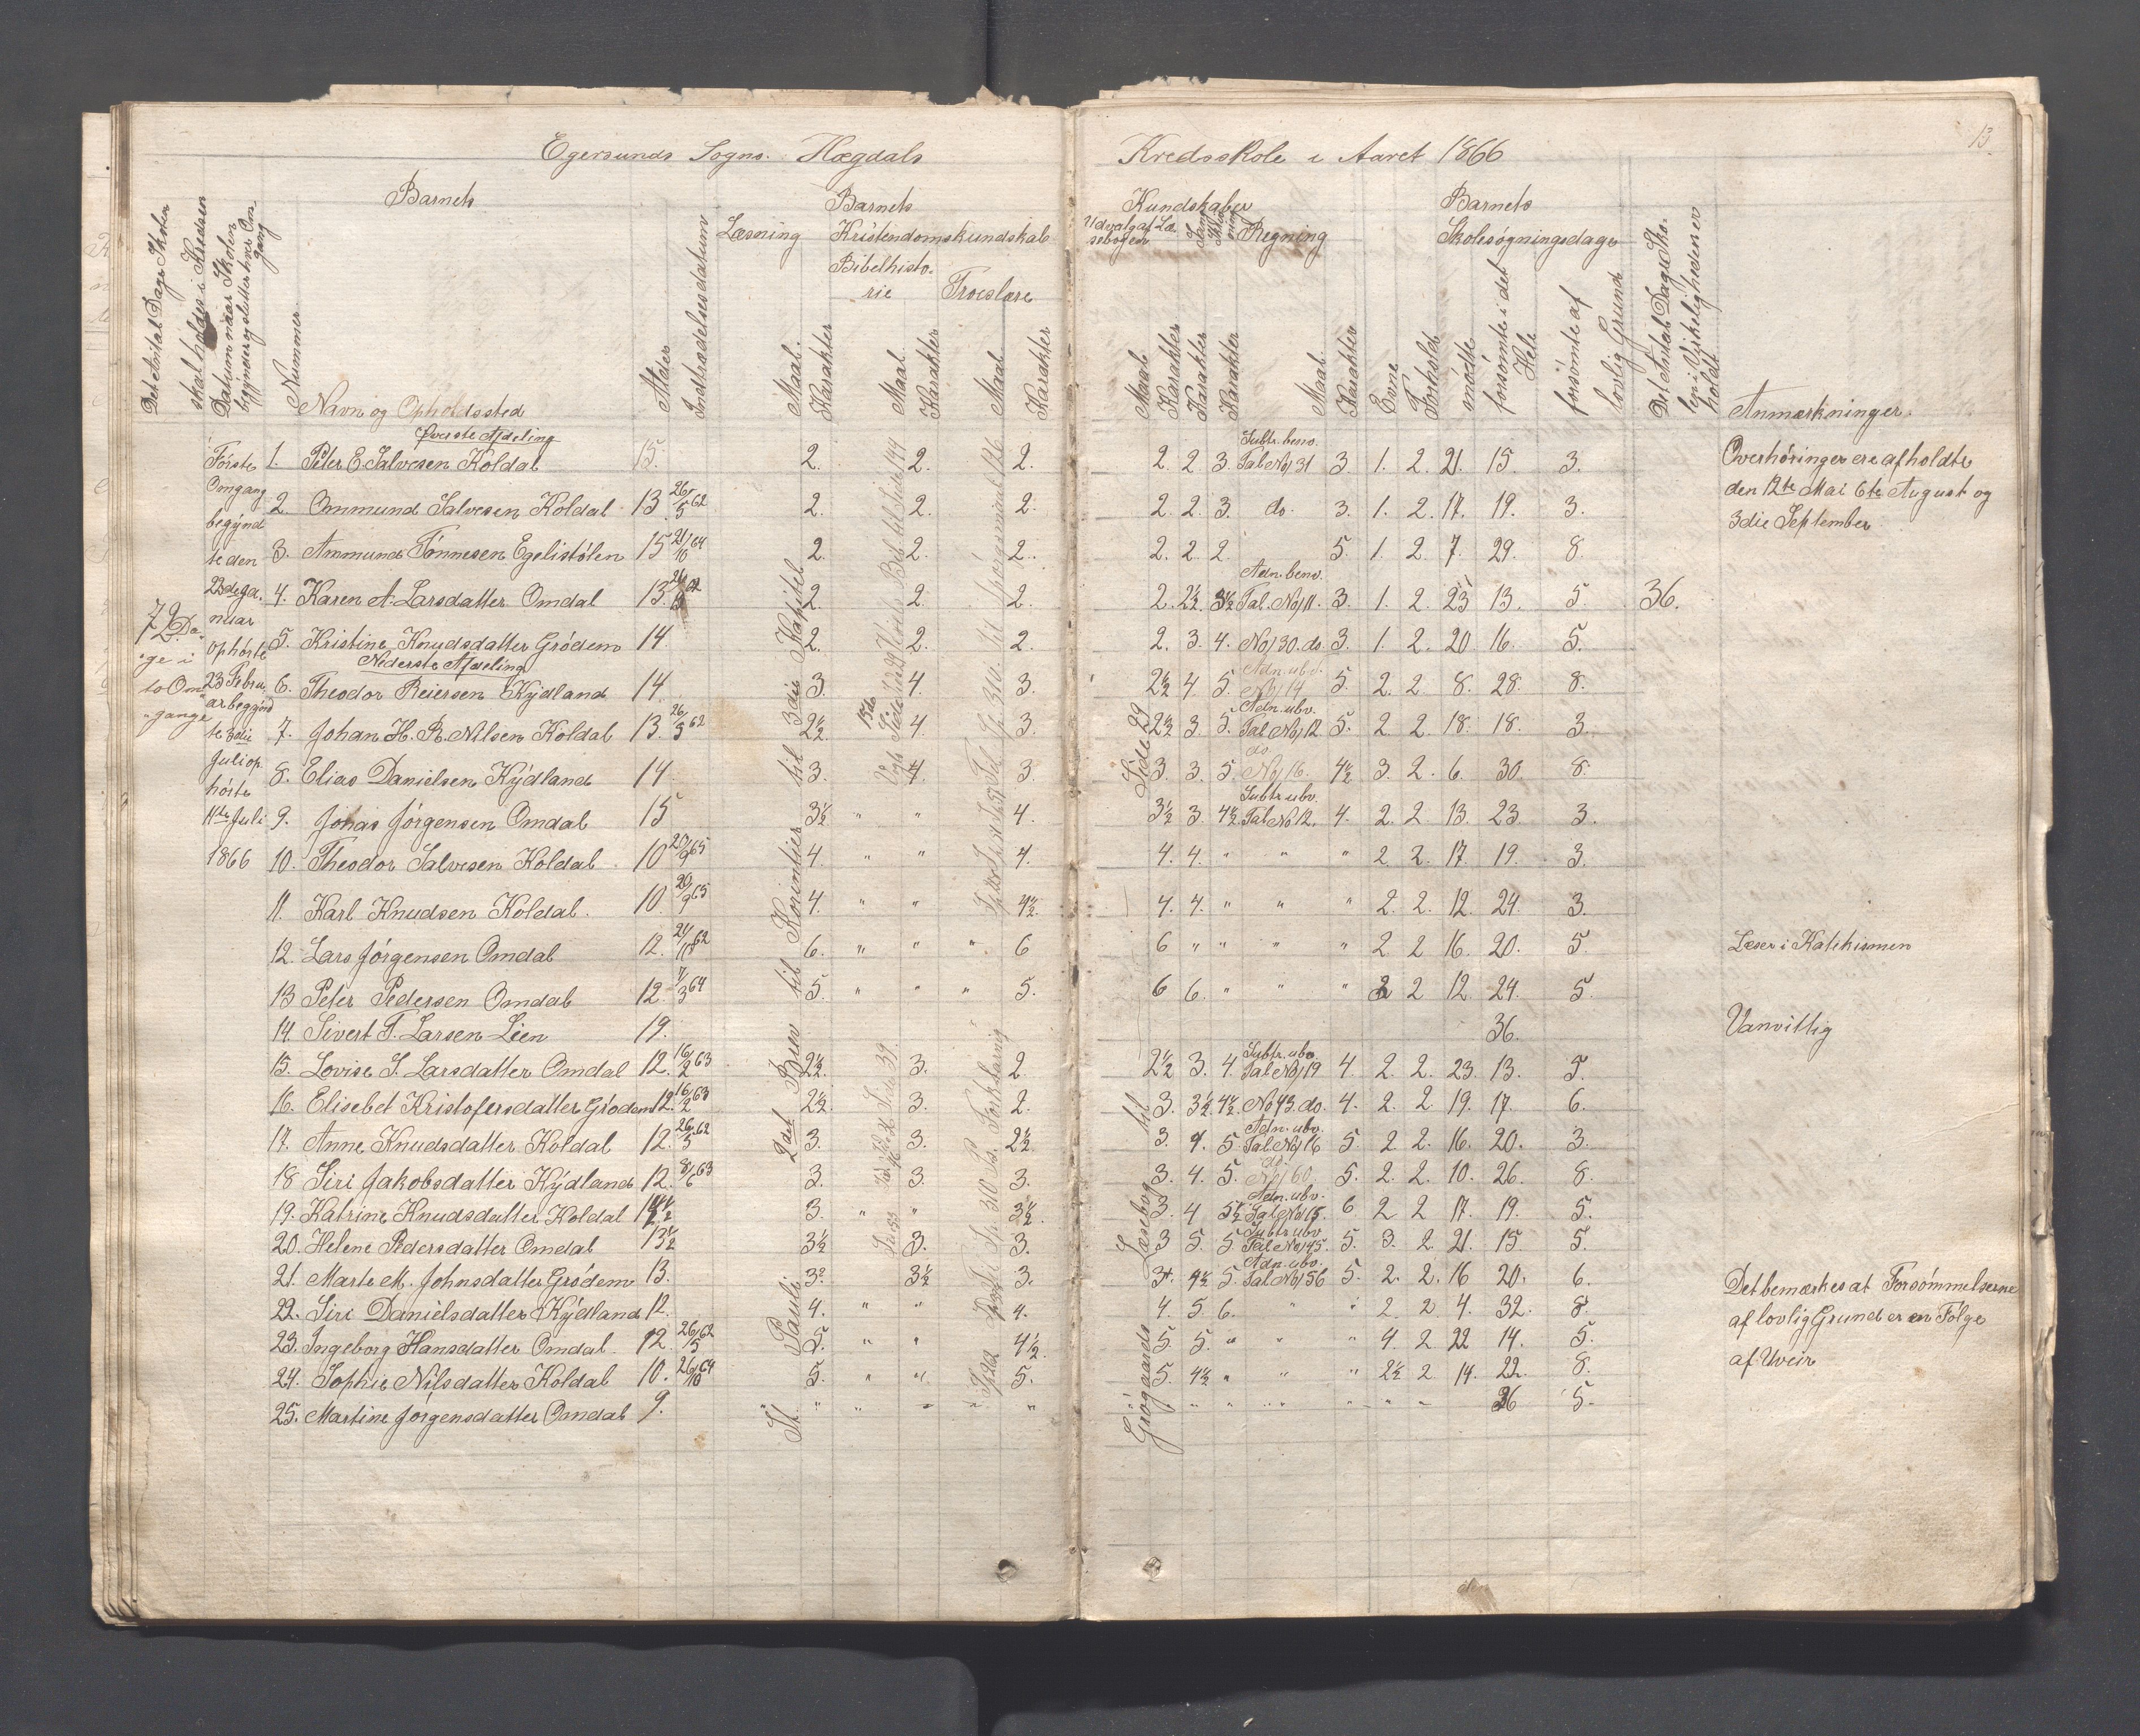 Egersunds Sogns Hægdals Kredsskole i Aaret 1866
13.
Det Antal Dage Skolen skal holdes i Kredsen
Datum naar Skolen begynder og slutter hver Omgang
Nummer
Barnets
Navn og Opholdssted
Alder
Indtrædelsesdatum
Barnets Kundskaber
Læsning
Kristendomskundskab
Bibelhistorie
Troeslære
Udvalg af Læsebogen
Sang
Regning
Maal. Karakter
Maal. Karakter
Maal Karakter
Maal Karakter Karakter Karakter
Maal. Karakter
Evne
Forhold
Barnets
Skolesøgningsdage
mødte
forsømte i det Hele
forsømte af lovlig Grund
Det Antal Dage Skolen i Virkeligheden er holdt
Anmærkninger.
72 Dage i to Omgange
Første Omgang begyndte den 23de Januar ophørte 23 Februar begyndte 3die Juli ophørte 11te Juli 1866
Øverste Afdeling
1. Peter E. Salvesen Koldal 15. 2. 2. 2. 2. 2. 3. Subtr. benv. Tal No 31 3. 1. 2. 21. 15. 3.
2. Ommund Salvesen Koldal 13 26/5 62 2. 2. 2. 2. 2. 3. do. 3. 1. 2. 17. 19. 3.
3. Ammund Tønnesen Egelistølen 15 21/10 64 2. 2. 2. 2. 2. 2. 5. 1. 2 7. 29. 8.
4. Karen A. Larsdatter Omdal 13. 2. 2. 2. 2. 2½ 3½ Adn. benv. Tal. No 11. 3. 1. 2. 23 13. 5. 36.
5. Kristine Knudsdatter Grødem 14. 2. 2. 2. 2. 3. 4. No 30. do. 3. 1 2. 20. 16. 5.
Nederste Afdeling
6. Theodor Reiersen Kydland 14. 3. 4. 3. 2½ 4. 5. Adn. ubv. No 14 5. 2. 2 8. 28. 8.
7. Johan H. R. Nilsen Koldal 13. 26/5 62 2½ 4 3. 2½ 3. 5. Adn. ubv. Tal No 12 5. 2. 2 18. 18. 3.
8. Elias Danielsen Kydland 14. 3. 4. 3. 3. 3. 5. do. No 16. 4½ 3. 2. 6. 30. 8.
9. Jonas Jørgensen Omdal 15 3½ " " 4. 3½ 3. 4½ Subtr. ubv. Tal No 12. 4. 2. 2. 13. 23 3.
10. Theodor Salvesen Koldal 10 20/9 65 4. " " 4. 4. 4. " " " 2. 2. 17 19. 3.
11. Karl Knudsen Koldal. 10. 20/9 65 4. " " 4½. 4. 4. " " " 2. 2. 12. 24. 3.
12. Lars Jørgensen Omdal 12. 6. " " " 6 6 " " " " 2 2 16. 20. 5.
13 Peter Pedersen Omdal 12. 7/3 64 5. " " " 5. 6 6. " " " 2 2 12. 24. 5.
14. Sivert T. Larsen Lien 19. 36.
15. Lovise S. Larsdatter Omdal 12. 16/2 63 2½. 3. 2. 2½ 3. 4. Subtr. ubv. Tal No 19 4 2. 2. 23. 13. 5.
16. Elisebet Kristofersdatter Grødem 12. 16/2 63 2½. 3. 2. 3. 3½. 4½. No 43. do. 4. 2. 2 19. 17. 6.
17. Anne Knudsdatter Koldal 12. 26/5 62 3. 3. 2½ 3. 4. 5 Adn. ubv. Tal No 16 5 2. 2. 16. 20. 3.
18 Siri Jakobsdatter Kydland 12. 8/6 63 3. 3. 3. 3. 4. 5. do. No 60 5. 2. 2. 10. 26. 8.
19. Katrine Knudsdatter Koldal 3. " " 3½. 3. 4 5½ Adn. ubv. Tal No 15. 6 2 2 17. 19. 5.
20. Helene Pedersdatter Omdal 13½ 3½ 3. 3. 3 5. 5. Subtr. ubv Tal No 45. 5. 3. 2. 21. 15 5.
21. Marte M. Johnsdatter Grødem 13. 3. 3½ 3. 3. 4½. 5. Adn. ubv. Tal No 56 5. 2. 2. 16 20. 6.
22. Siri Danielsdatter Kydland 12. 4. " " 4. 4. 5 6. " " 2. 2 4. 32. 8.
23. Ingeborg Hansdatter Omdal. 12. 26/5 62 5. " " 4½. 5. 5. " " " 4. 2 22 14. 5.
24. Sophie Nilsdatter Koldal 10. 26/10 64 5. " " 5. 5. 4½ " " " 2½ 2. 14. 22. 8.
25. Martine Jørgensdatter Omdal 9. " " " " " " " " " " " 36 5.
St. Pauli 2det Brev til Korintier til 3die Kapitel
Side 29 til
Grøgaards Læsebog
Overhøringer ere afholdte
den 12te Mai 6te August og
3die September
Læser i Katekismen
Vanvittig
Det bemærkes at Forsømmelserne
af lovlig Grund er en Følge
af Uveir